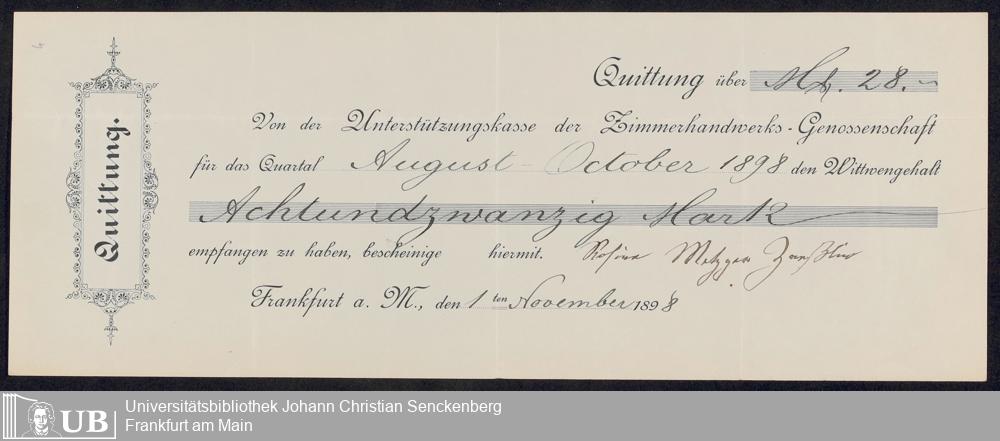 Quittung.
Quittung über Mk. 28.~
Von der Unterstützungskasse der Zimmerhandwerks-Genossenschaft
für das Quartal August - October 1898 den Wittwengehalt
Achtundzwanzig Mark
empfangen zu haben, bescheinige hiermit. Rosina Metzger
Frankfurt a. M., den 1ten November 1898
UB
Universitätsbibliothek Johann Christian Senckenberg
Frankfurt am Main